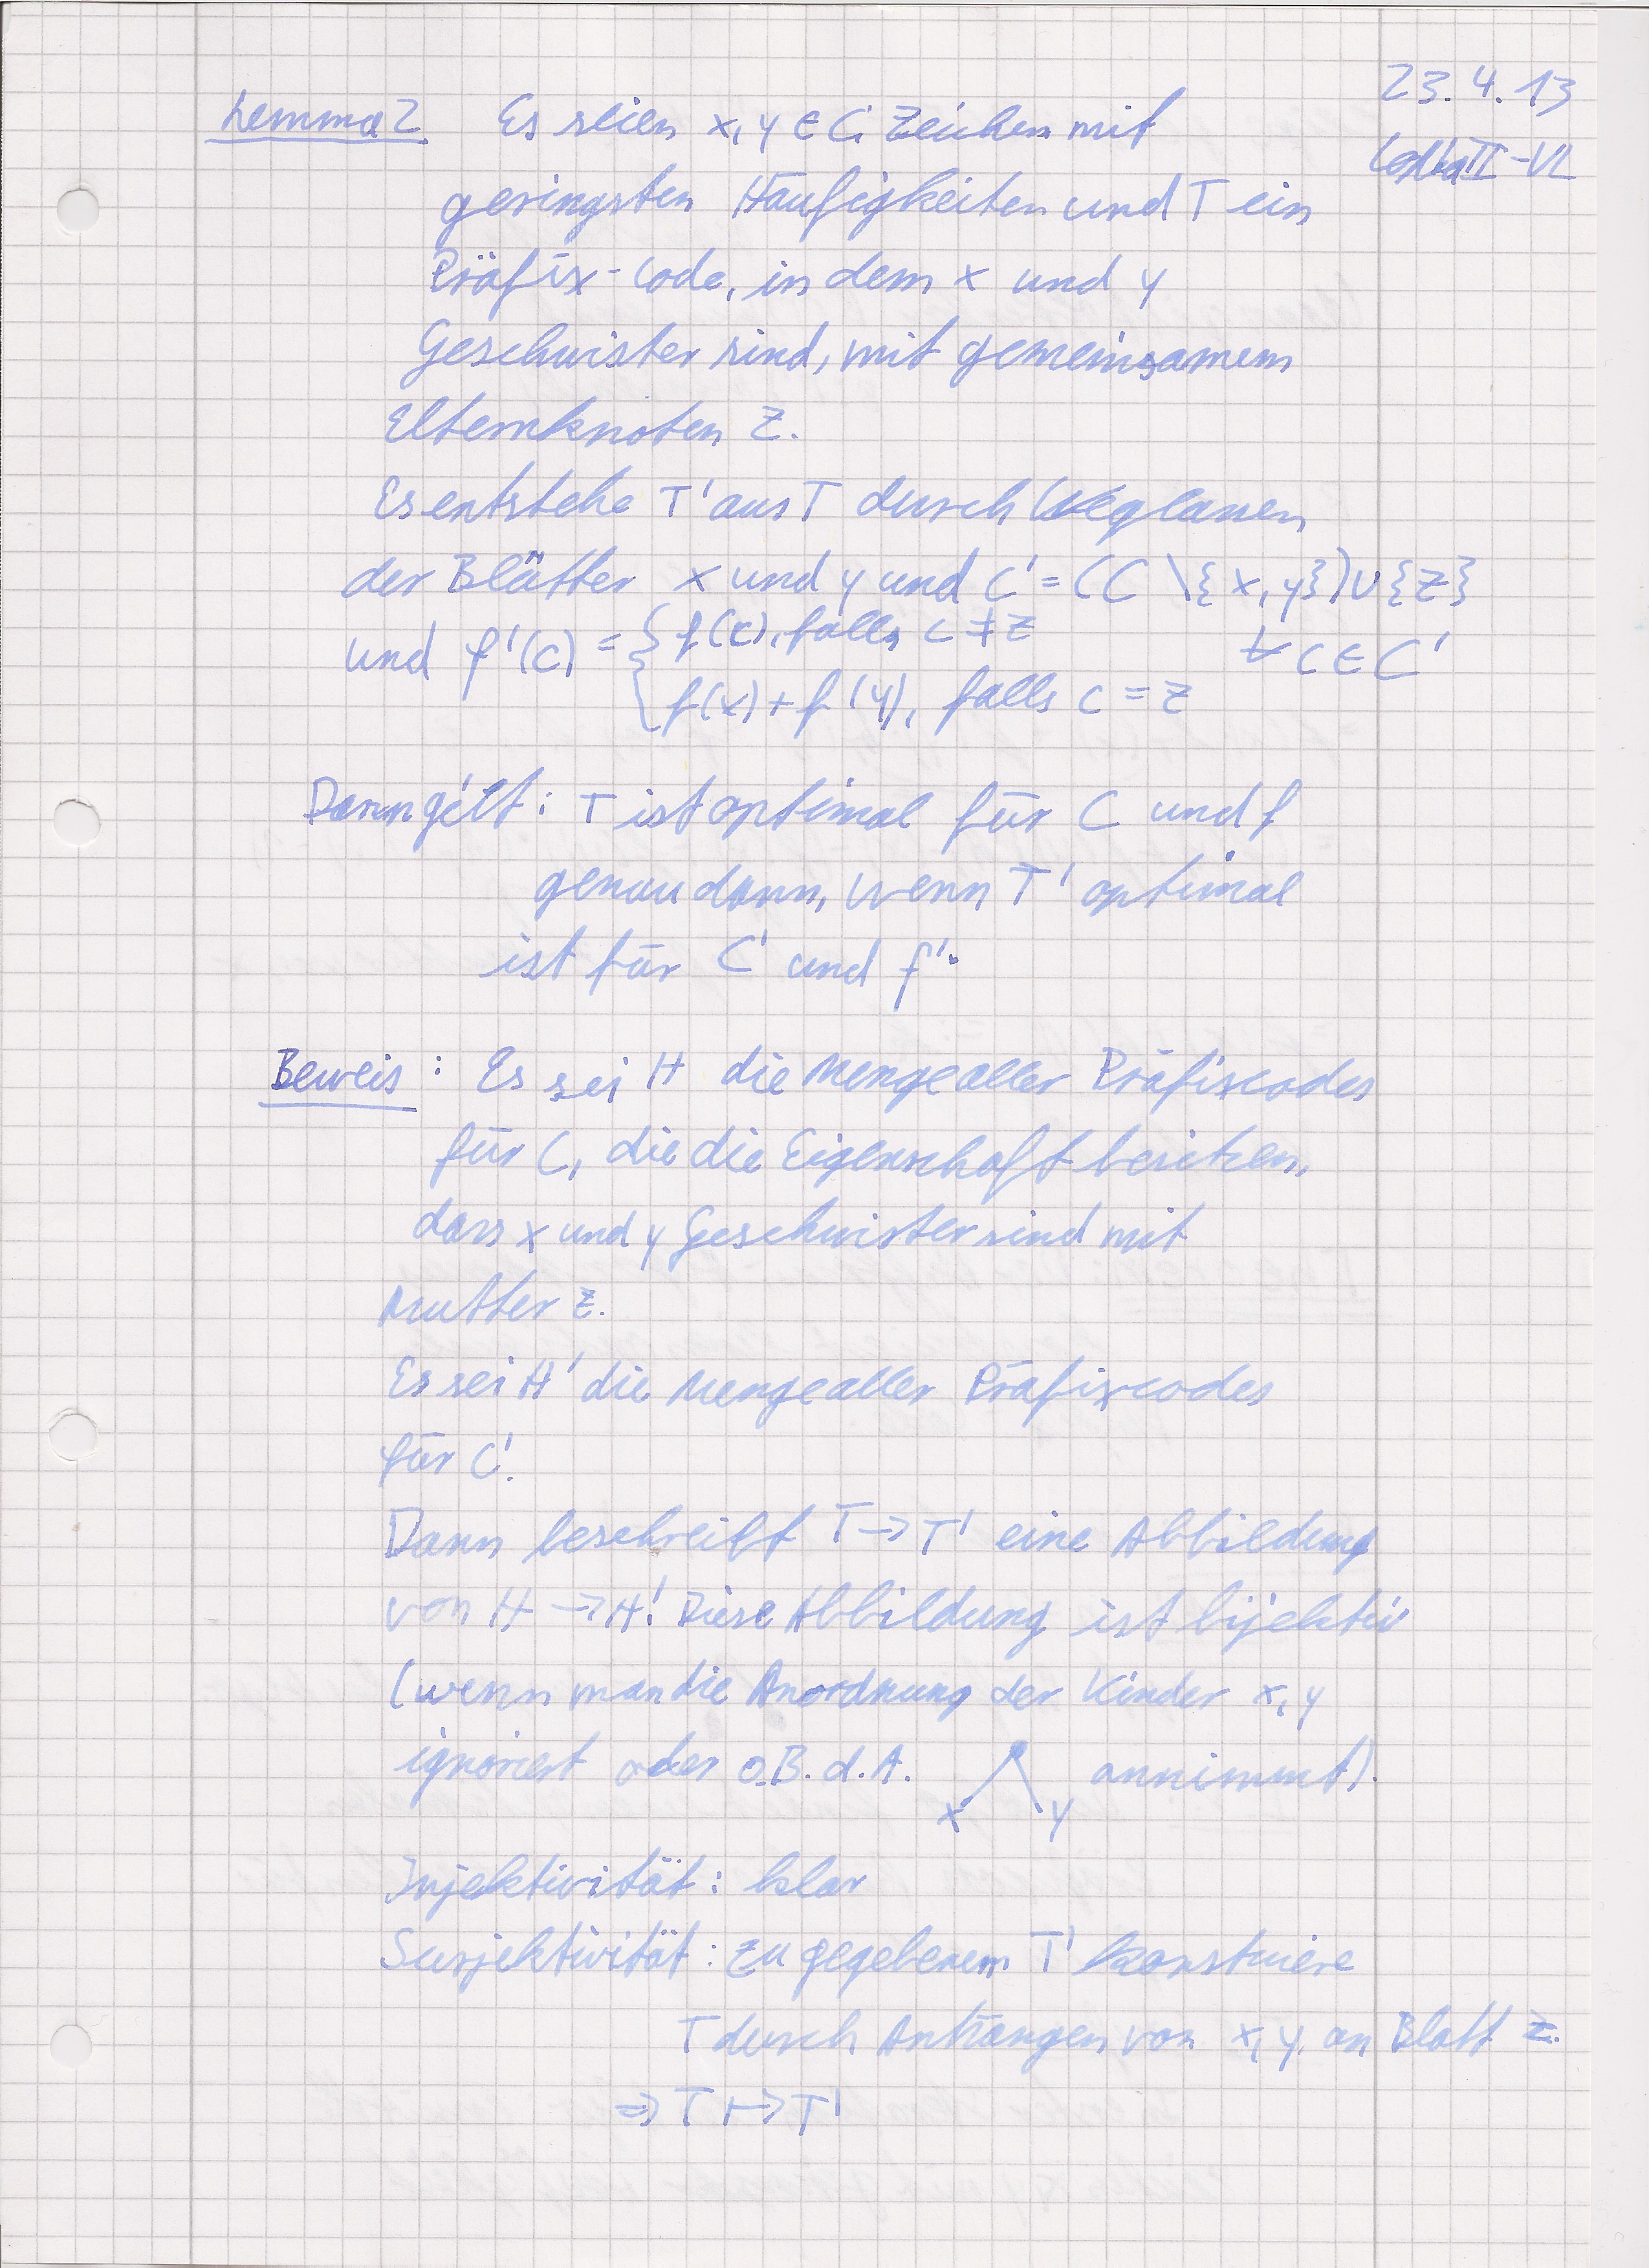 23.4.13
Lemma 2 Es seien x, y ∈ C Zeichen mit
II-VL
geringsten Häufigkeiten und T ein
Präfix-Code, in dem x und y
Geschwister sind, mit gemeinsamem
Elternknoten z.
Es entstehe T' aus T durch Weglassen
der Blätter x und y und C' = (C \ {x, y}) ∪ {z}
und f'(c) = { f(c), falls c ≠ z ∀ c ∈ C'
f(x) + f(y), falls c = z
Dann gilt: T ist optimal für C und f
genau dann, wenn T' optimal
ist für C' und f'.
Beweis: Es sei H die Menge aller Präfixcodes
für C, die die Eigenschaft besitzen,
dass x und y Geschwister sind mit
Mutter z.
Es sei H' die Menge aller Präfixcodes
für C'.
Dann beschreibt T → T' eine Abbildung
von H → H'. Diese Abbildung ist bijektiv
(wenn man die Anordnung der Kinder x, y
ignoriert oder o.B.d.A. annimmt).
x y
Injektivität: klar
Surjektivität: zu gegebenem T' konstruiere
T durch Anhängen von x, y an Blatt z.
⇒ T ↦ T'